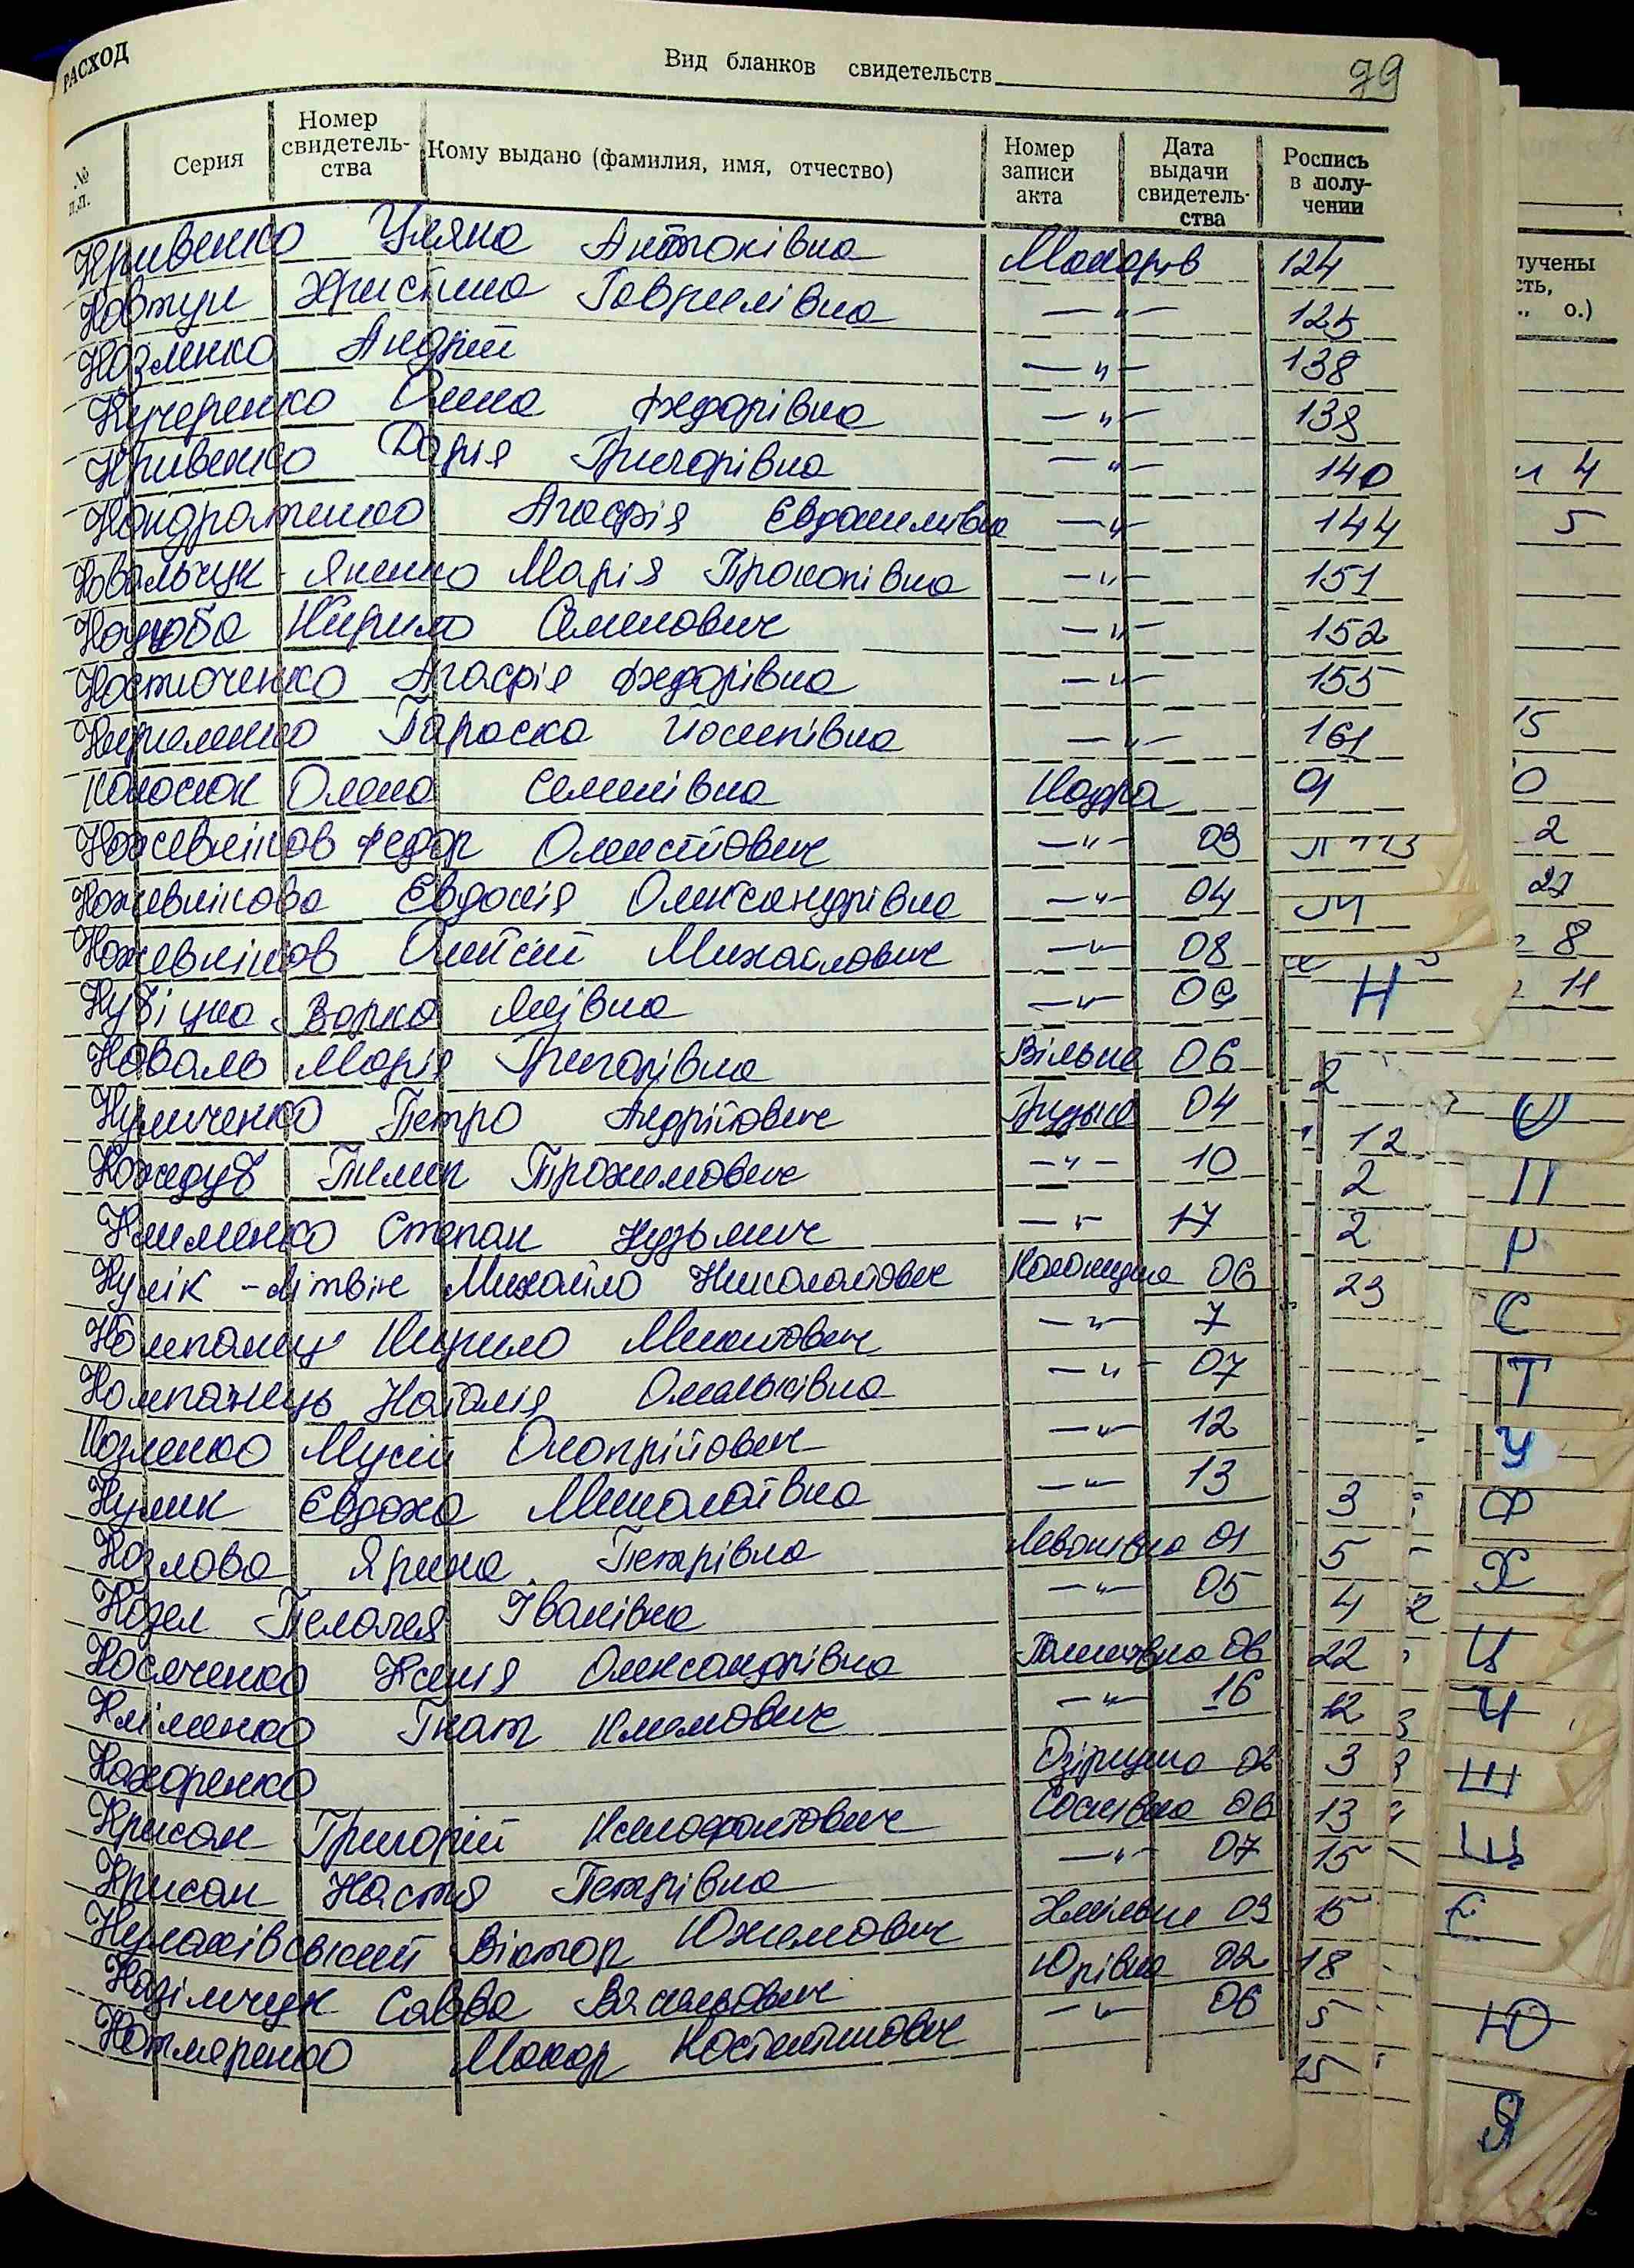 РАСХОД
Вид бланков свидетельств
79
№ п.п. Серия Номер свидетель-ства Кому выдано (фамилия, имя, отчество) Номер записи акта Дата выдачи свидетель-ства Роспись в полу-чении
Кривенко Уляна Антонівна Макарів 124
Ковтун Христина Гаврилівна —"— 125
Козленко Андрій —"— 138
Кучеренко Олена Федорівна —"— 139
Кривенко Дарія Григорівна —"— 140
Кондратенко Агафія Євдокимівна —"— 144
Ковальчук-Яненко Марія Прокопівна —"— 151
Кирило Семенович —"— 152
Костюченко Агафія Федорівна —"— 155
Кириленко Параска Йосипівна —"— 161
Колосюк Олена Семенівна Наздра 01
Кожевніков Федор Олексійович —"— 03
Кожевнікова Євдокія Олександрівна —"— 04
Кожевніков Олексій Михайлович —"— 08
Варка —"— 09
Коваль Марія Григорівна Вільне 06
Куличенко Петро Андрійович Грузьке 04
Кожедуб Пилип Трохимович —"— 10
Клименко Степан Кузьмич —"— 17
Кулік-Літвін Михайло Николайович Колонщина 06
Компанец Кирило Микитович —"— 7
Компанець Наталія Омельківна —"— 07
Козленко Мусій Онопрійович —"— 12
Кулик Євдоха Миколаївна —"— 13
Козлова Ярина Петрівна Леваківна 01
Козел Пелагея Іванівна —"— 05
Косяченко Ксенія Олександрівна 06
Кліменко Гнат Климович —"— 16
Кохоренко Озірщина 06
Крисан Григорій Ксенофонтович Соснівка 06
Крисан Настя Петрівна —"— 07
Віктор Юхимович 03
Казімчук Савва Васильович Юрівка 02
Котляренко Макар Костянтинович —"— 06
лучены
сть,
., о.)
Н
О
П
Р
С
Т
У
Ф
Х
Ц
Ч
Ш
Щ
Є
Ю
Я